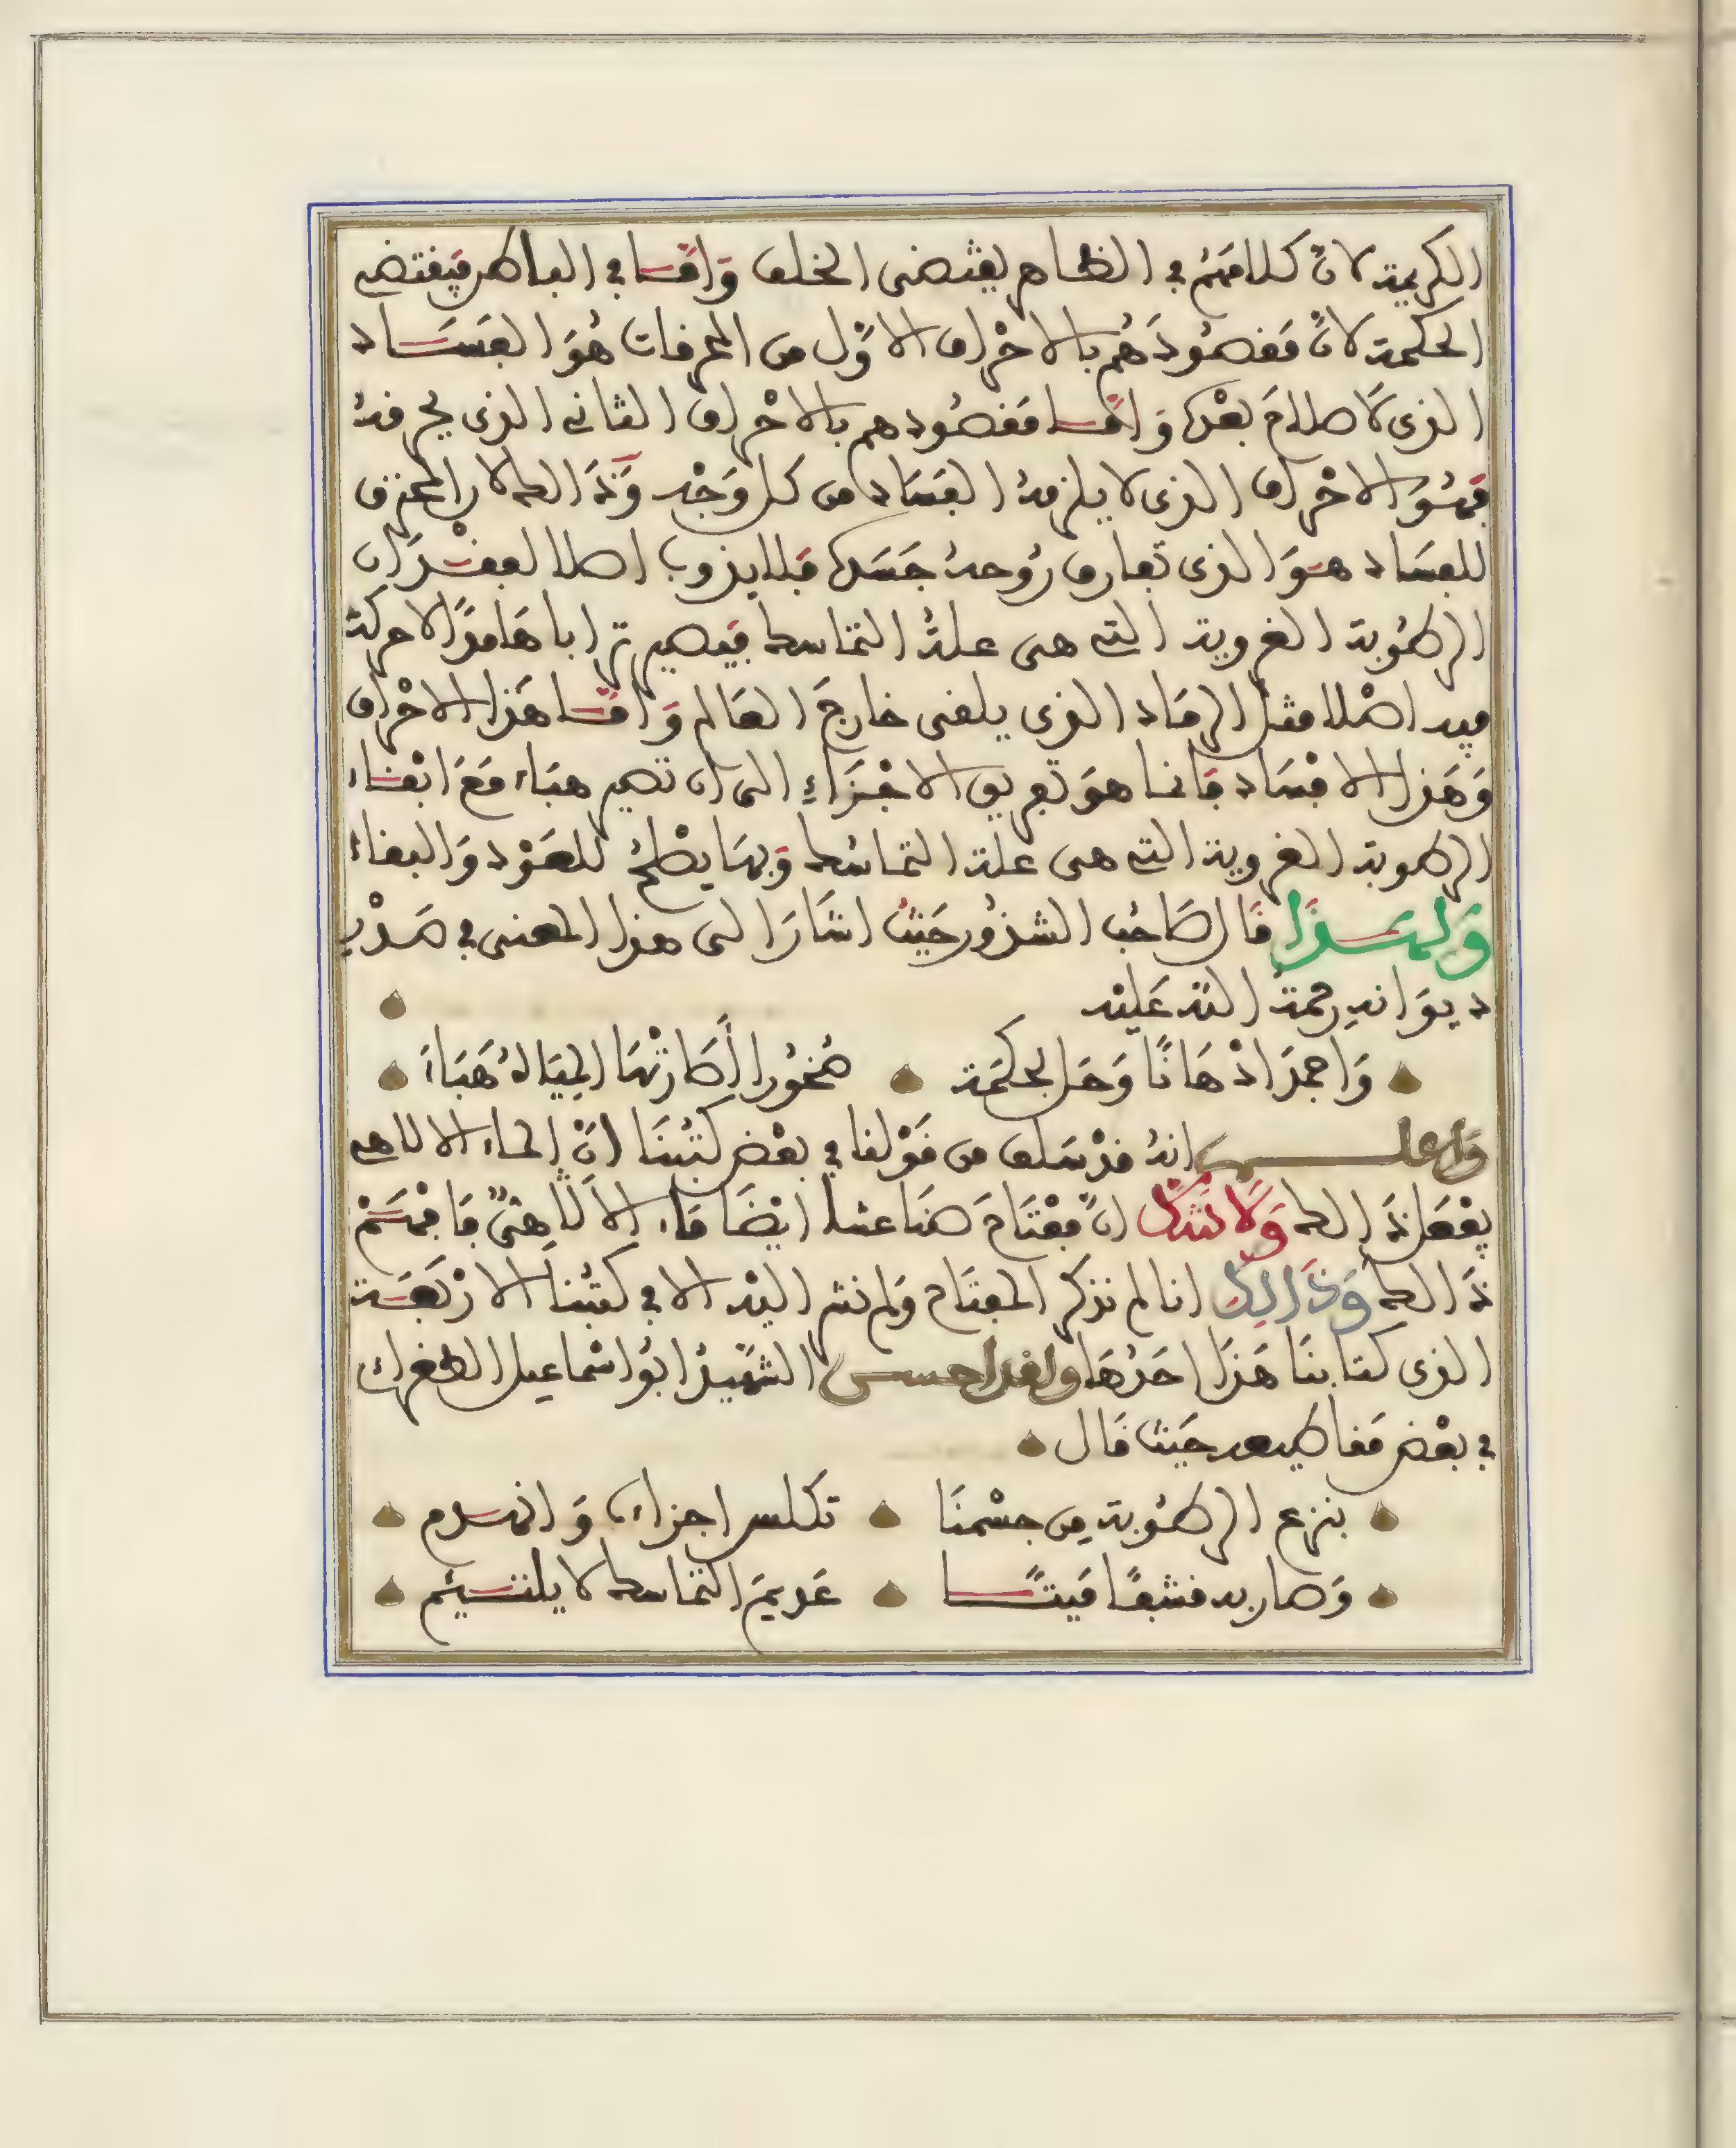 الكريمة لانّ كلامهم في الظاهر يقتضى الخلف وَامّا في الباطن فيقتضى
الحكمة لانّ مَقصُودَهُم بالاحْراق الاوّل من المحرقات هُوَ الفَسَاد
الذى لَا صلاحَ بعْده وَامّا مَقصُودهم بالاحْراق الثانى الذى يحرقهُ
فهُوَ الاحْراق الذى لا يلزمهُ الفسَاد من كل وَجْه وَذَالك لان المحترق
للفسَاد هوَ الذى تفارق رُوحهُ جَسَده فلا يذوب اصلا لفقدَان
الرطُوبة الغروية التى هى علةُ التماسك فيَصير ترابا هَامدًا لا حركة
فيه اصْلا مثل الرمَاد الذى يلقى خارجَ العَالم وَامّا هَذا الاحْراق
وَهَذا الافسَاد فانما هوَ تفريق الاجْزَاءِ الى ان تصير هبَاء مَعَ ابْقاء
الرطوبة الغروية التى هى علة التماسُك وَبهَا يصْلحُ للعَوْد وَالبقاء
وَلهذَا قَال صَاحبُ الشذُور حَيْثُ اشَارَ الى هذا المعنى في صَدْر
ديوَانهِ رحمةُ اللّه عَليْه
وَاجمدَ ادْهَانًا وَحَل بحكمَة صُخُورا أَطَارتْهَا المِيَاهُ هَبَاءَ
وَاعلم انهُ قدْ سَلف من قَوْلنا في بعْض كتُبنَا انّ الماء الالاهى
يفْعَل ذَالك وَلَا تشكّ انّ مِفْتَاحَ صنَاعتنا ايْضَا مَاء الالَاهىّ فَافهَمْ
ذَالك وَذَالِكَ انا لم نذكر المفتَاح وَلم نشر اليْه الا في كتبُنا الارْبَعَة
الذى كتابنَا هَذَا احَدُهَا وَلقد احسن الشهيدُ ابُو اسْماعيل الطغراى
في بعْض مَقاطيعه حَيْث قَال
بنزع الرطُوبة مِن جسْمنَا تكلس اجزاءه وَانهدم
وَصَار به قشفًا مَيتًا عَديمَ التماسك لا يلتئم